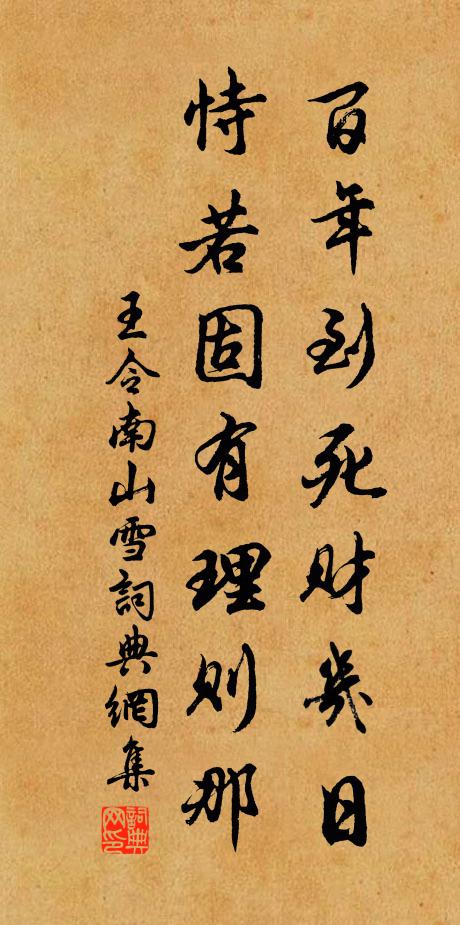 百年到死财幾日
恃若固有理则那
王令南山雪詞典網集
詞典网印